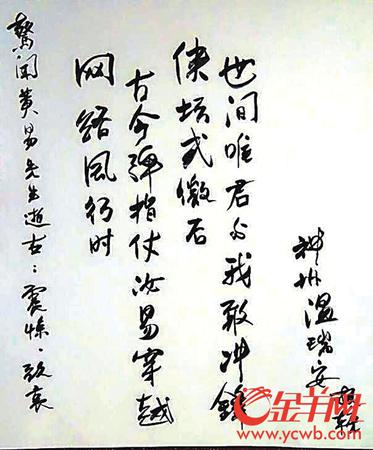 驚闻黄易先生逝去：震悚、致哀
网络风行时
古今弹指仗汝易穿越
侠坛式微后
世间唯君与我敢冲锋
神州温瑞安
金羊网
www.ycwb.com